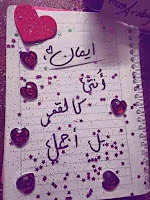 ايمان
أنثى
كالقمر
بل أجمل